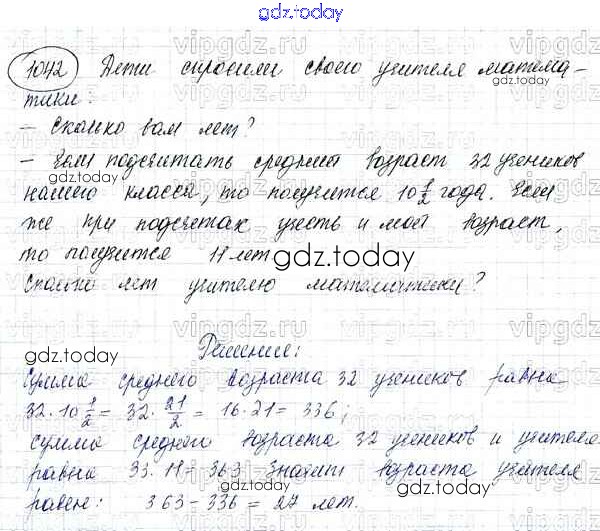 gdz.today
1042 Дети спросили своего учителя матема-
тики:
- Сколько вам лет?
- Если подсчитать средний возраст 32 учеников
нашего класса, то получится 10 1/2 года. Если
же при подсчётах учесть и мой возраст,
то получится 11 лет
Сколько лет учителю математики?
Решение:
Сумма среднего возраста 32 учеников равна
32·10 1/2 = 32·21/2 = 16·21 = 336;
сумма средней возраста 32 учеников и учителя
равна 33·11 = 363 Значит возраста учителя
равен: 363-336 = 27 лет.
gdz.today
gdz.today
gdz.today
gdz.today
gdz.today
gdz.today
vipgdz.ru